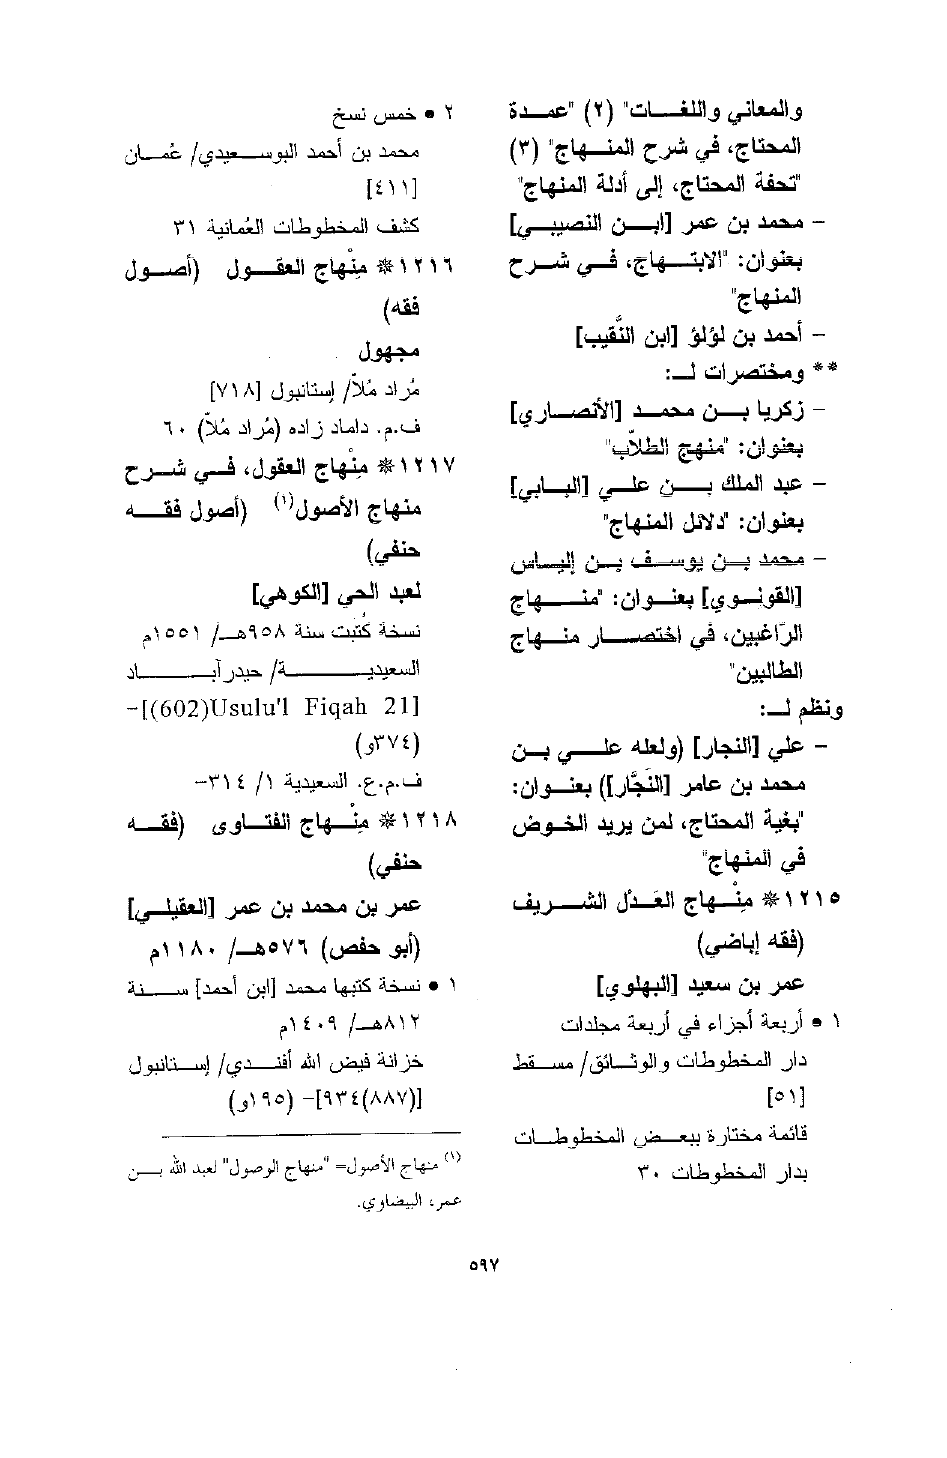 والمعاني واللغات" (٢) "عمدة
المحتاج، في شرح المنهاج" (٣)
"تحفة المحتاج، إلى أدلة المنهاج"
– محمد بن عمر [ابن النصيبي]
بعنوان: "الابتهاج، في شرح
المنهاج"
– أحمد بن لؤلؤ [ابن النَّقيب]
** ومختصرات لـ:
– زكريا بن محمد [الأنصاري]
بعنوان: "منهج الطلاّب"
– عبد الملك بن علي [البابي]
بعنوان: "دلائل المنهاج"
– محمد بن يوسف بن إلياس
[القونوي] بعنوان: "منهاج
الرّاغبين، في اختصار منهاج
الطالبين"
ونظم لـ:
– علي [النجار] (ولعله علي بن
محمد بن عامر [النَجَّار]) بعنوان:
"بغية المحتاج، لمن يريد الخوض
في المنهاج"
١٢١٥* مِنْهاج العَدْل الشريف
(فقه إباضي)
عمر بن سعيد [البهلوي]
١ • أربعة أجزاء في أربعة مجلدات
دار المخطوطات والوثائق/ مسقط
[٥١]
قائمة مختارة ببعض المخطوطات
بدار المخطوطات ٣٠
٢ • خمس نسخ
محمد بن أحمد البوسعيدي/ عُمان
[٤١١]
كشف المخطوطات العُمانية ٣١
١٢١٦* مِنْهاج العقول (أصول
فقه)
مجهول
مُراد مُلاّ/ إستانبول [٧١٨]
ف.م. داماد زاده (مُراد مُلاّ) ٦٠
١٢١٧* مِنْهاج العقول، في شرح
منهاج الأصول(١) (أصول فقه
حنفي)
لعبد الحي [الكوهي]
نسخة كُتبت سنة ٩٥٨هـ/ ١٥٥١م
السعيدية/ حيدرآباد
[Usulu'l Fiqah 21(602)]–
(٣٧٤و)
ف.م.ع. السعيدية ١/ ٣١٤–
١٢١٨* مِنْهاج الفتاوى (فقه
حنفي)
عمر بن محمد بن عمر [العقيلي]
(أبو حفص) ٥٧٦هـ/ ١١٨٠م
١ • نسخة كتبها محمد [ابن أحمد] سنة
٨١٢هـ/ ١٤٠٩م
خزانة فيض الله أفندي/ إستانبول
[(٨٨٧)٩٣٤]– (١٩٥و)
(١) منهاج الأصول= "منهاج الوصول" لعبد الله بن
عمر، البيضاوي.
٥٩٧